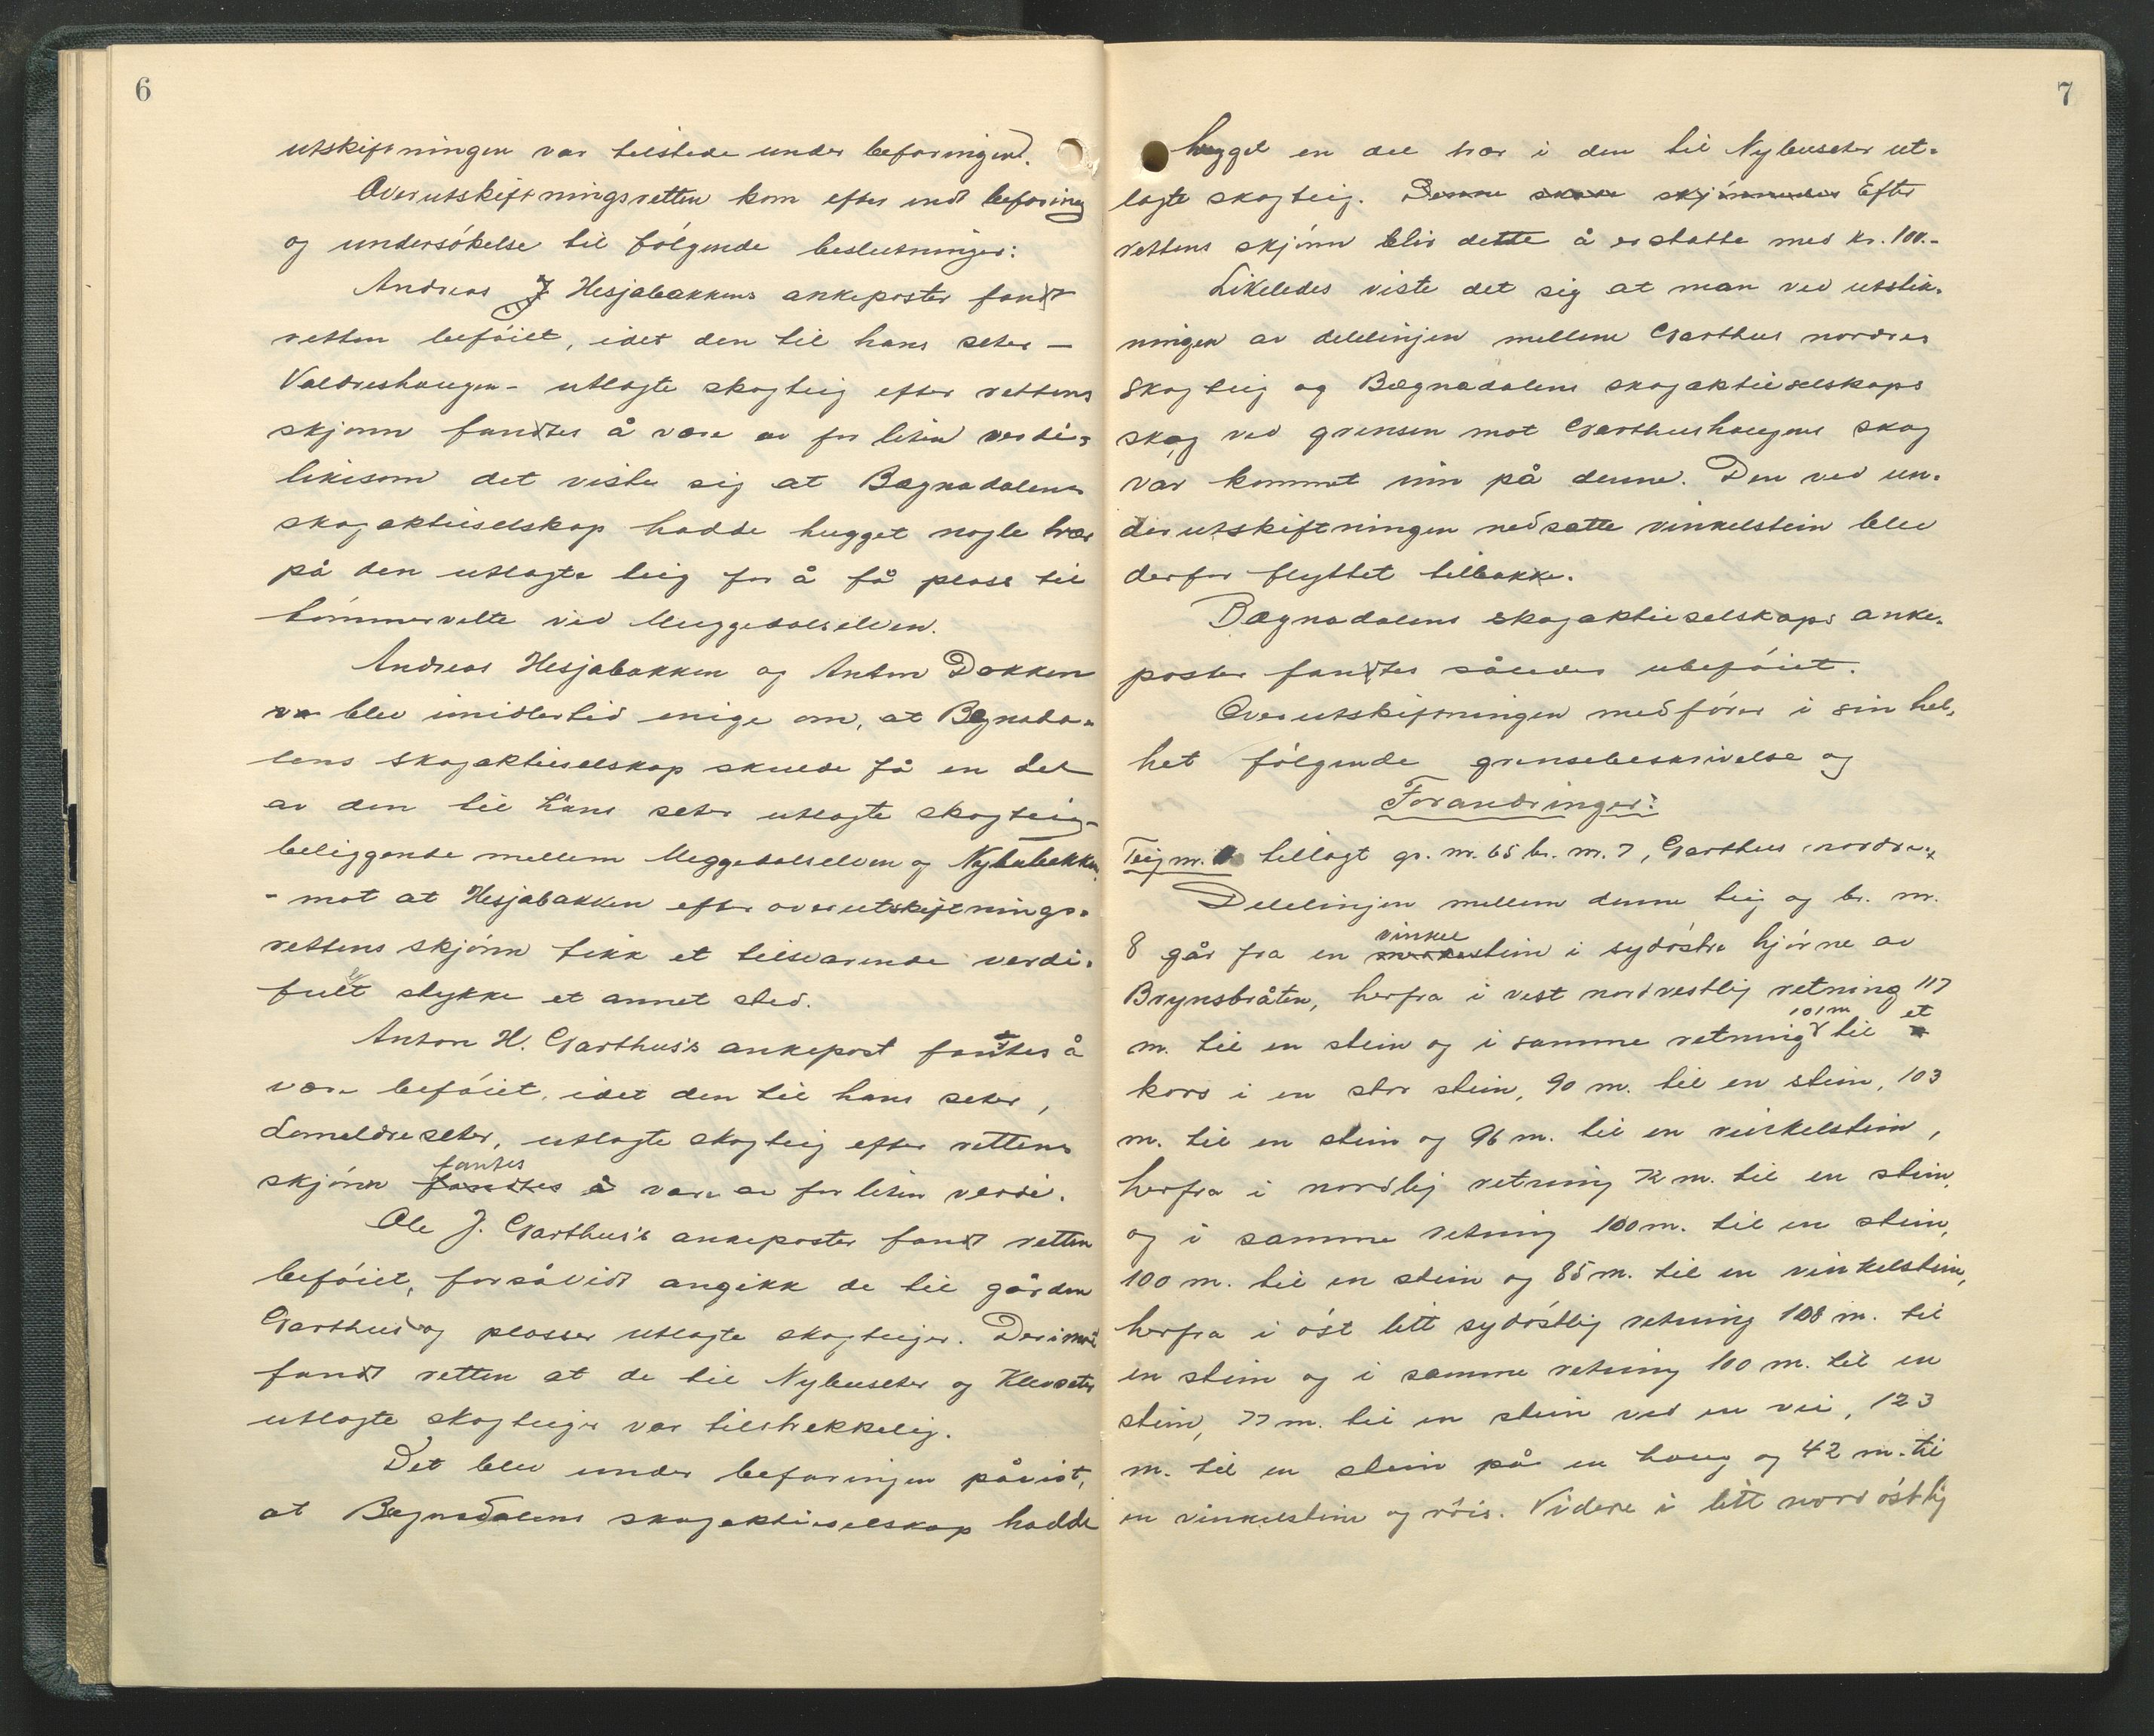 6
utskiftningen var tilstede under befaringen.
Overutskiftningsretten kom efter endt befaring
og undersókelse til fólgende beslutninger:
Andreas J Hesjabakkens ankeposter fandt
retten befóiet, idet den til hans seter -
Valdreshaugen - utlagte skogteig efter rettens
skjønn fandtes å være av for liten verdi,
likesom det viste sig at Bægnadalens
skogaktieselskap hadde hugget nogle trær
på den utlagte teig for å få plass til
tómmervelte ved Muggedalselven.
Andreas Hesjabakken og Anton Dokken
blev imidlertid enige om, at Bægnada-
lens skogaktieselskap skulde få en del
av den til hans seter utlagte skogteig -
beliggende mellem Muggedalselven og Nybubekken
- mot at Hesjabakken efter overutskiftnings-
rettens skjónn fikk et tilsvarende verdi-
fullt stykke et annet sted.
Anton H. Garthus's ankepost fandtes å
være befóiet, idet den til hans seter,
Lomeldreseter, utlagte skogteig efter rettens
skjónn fandtes fantes å være av for liten verdi.
Ole J. Garthus's ankeposter fandt retten
befóiet, forsåvidt angikk de til gården
Garthus og plasser utlagte skogteiger. Derimot
fandt retten at de til Nybuseter og Klevseter
utlagte skogteiger var tilstrekkelig.
Det blev under befaringen påvist,
at Bægnadalens skogaktieselskap hadde
7
hugget en del trær i den til Nybuseter ut-
lagte skogteig. Denne skade skjónnedes Efter
rettens skjónn blir dette å erstatte med kr. 100.-
Likeledes viste det sig at man ved utstik-
ningen av delelinjen mellem Garthus nordres
skogteig og Bægnadalens skogaktieselskaps
skog ved grensen mot Garthushaugens skog
var kommet inn på denne. Den ved un-
derutskiftningen nedsatte vinkelstein blev
derfor flyttet tilbakke.
Bægnadalens skogaktieselskaps anke-
poster fandtes således ubefóiet.
Overutskiftningen medfórer i sin hel-
het fólgende grensebeskrivelse og
Forandringer:
Teig nr. tillagt gr. nr. 65 br. nr. 7, Garthus nordre.
Delelinjen mellem denne teig og br. nr.
8 går fra en merkestein vinkel i sydóstre hjórne av
Brynsbråten, herfra i vest nordvestlig retning 117
m. til en stein og i samme retning 101 m til et
kors i en stor stein, 90 m. til en stein, 103
m. til en stein og 96 m. til en vinkelstein,
herfra i nordlig retning 72 m. til en stein,
og i samme retning 100 m. til en stein,
100 m. til en stein og 85 m. til en vinkelstein,
herfra i óst litt sydóstlig retning 108 m. til
en stein og i samme retning 100 m. til en
stein, 77 m. til en stein ved en vei, 123
m. til en stein på en haug og 42 m. til
en vinkelstein og róis. Videre i litt nordóstlig